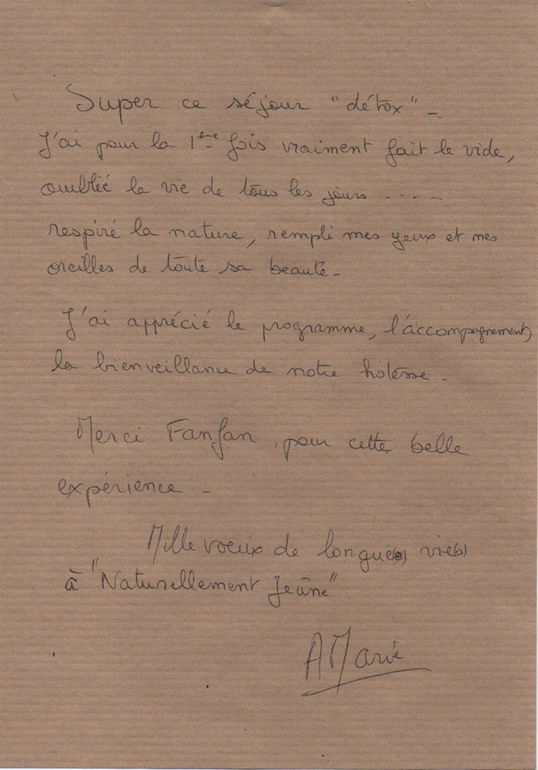 Super ce séjour "détox" -
J'ai pour la 1ère fois vraiment fait le vide,
oublié la vie de tous les jours .....
respiré la nature, rempli mes yeux et mes
oreilles de toute sa beauté -
J'ai apprécié le programme, l'accompagnement,
la bienveillance de notre hôtesse -
Merci Fanfan, pour cette belle
expérience -
Mille voeux de longue(s) vie(s)
à "Naturellement Jeûne"
AMarie